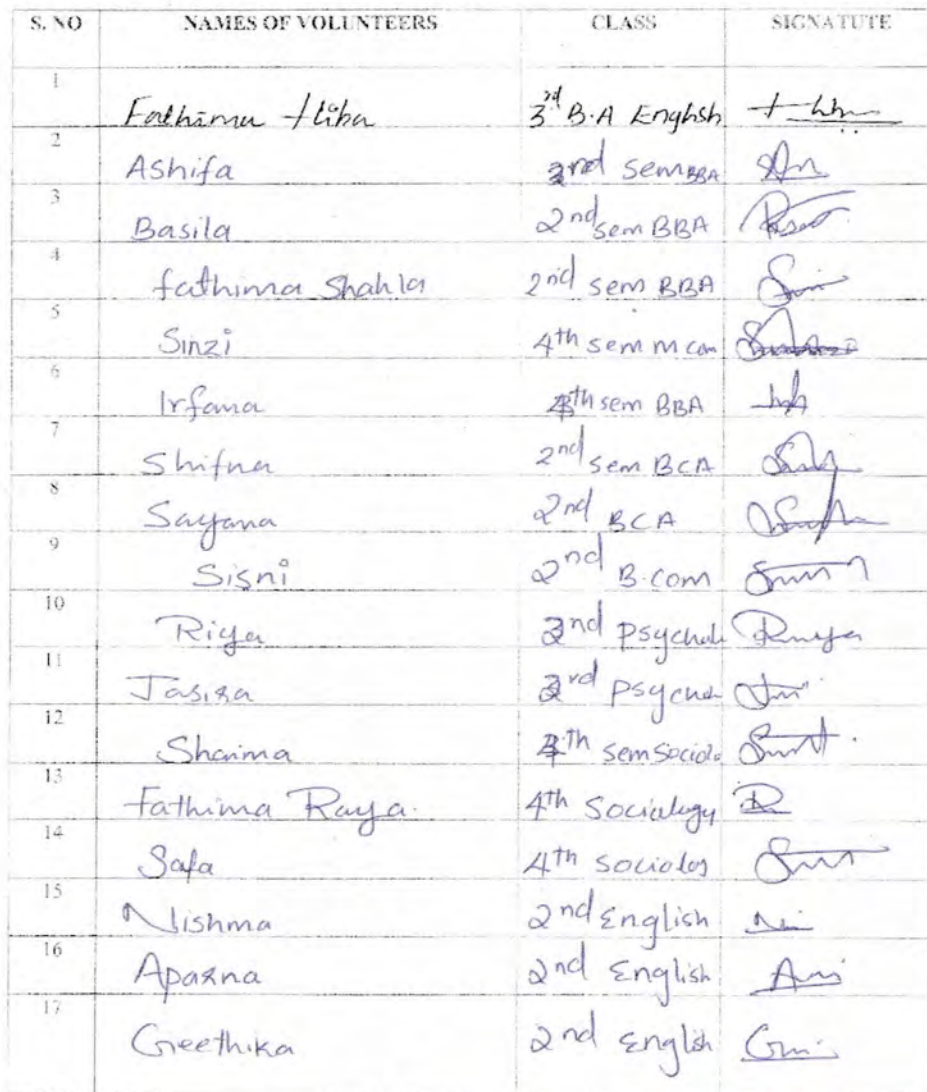 S. NO NAMES OF VOLUNTEERS CLASS SIGNATUTE
1 Fathima Hiba 3rd B.A English
2 Ashifa 2nd sem BBA
3 Basila 2nd sem BBA
4 fathima Shahla 2nd sem BBA
5 Sinzi 4th sem m com
6 Irfana 4th sem BBA
7 Shifna 2nd sem BCA
8 Sayana 2nd BCA
9 Sisni 2nd B.com
10 Riya 2nd Psychol
11 Jasira 2rd Psychol
12 Shaima 4th sem Sociolo
13 Fathima Raya. 4th Sociology
14 Safa 4th Sociolog
15 Nishma 2nd English
16 Aparna 2nd English
17 Greethika 2nd English